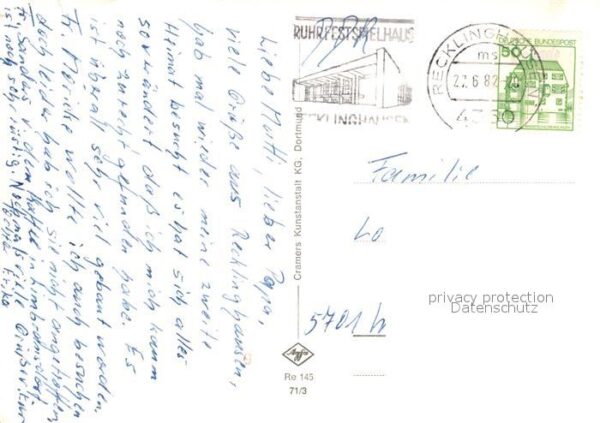 Liebe Mutti, lieber Papa,
viele Grüße aus Recklinghausen,
hab mal wieder meine zweite
Heimat besucht es hat sich alles
so verändert daß ich mich kaum
noch zurecht gefunden habe. Es
ist überall sehr viel gebaut worden.
Fr. wollte ich auch besuchen
doch leider hab ich sie nicht angetroffen
Fr. Sandus v. dem Kaffee in
ist noch sehr rüstig. Nochmals viele
Grüße
DDR
RUHRFESTSPIELHAUS
RECKLINGHAUSEN
RECKLINGHAUSEN
ms
22.6.82
4350
50
DEUTSCHE BUNDESPOST
Familie
Lo
5701
privacy protection
Datenschutz
Cramers Kunstanstalt KG, Dortmund
Agfa
Re 145
71/3